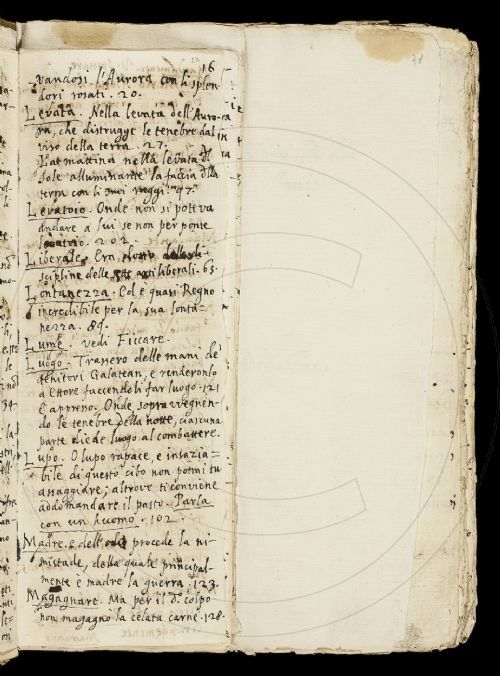 16
vandosi l'Aurora con li splen-
dori rosati. 20.
Levata. Nella levata dell'Auro-
ra, che distrugge le tenebre dal
viso della terra. 27.
L'at mattina nella levata dl
sole alluminante la faccia dlla
terra con li suoi raggi. 97.
Levatoio. Onde non si poteva
andare a lui se non per ponte
levatoio. 202.
Liberale. Era
scipline delle arti liberali. 65.
Lontanezza. Col e quasi Regno
incredibile per la sua lonta=
nezza. 89.
Lume. vedi Ficcare.
Luogo. Trassero delle mani de
tenitori Galatean, e renderonlo
a Ettore faccendoli far luogo. 121
E appreno. Onde sopravvegnen-
do le tenebre della notte, ciascuna
parte diede luogo al combattere.
Lupo. O lupo rapace, e insazia=
bile di questo cibo non potrai tu
assaggiare; altrove ti conviene
addomandare il pasto. Parla
con un huomo. 102.
Madre. E dell' procede la ni-
mistade, della quale principal-
mente è madre la guerra. 123.
Magagnare. Ma per il d. colpo
non magagno la celata carne. 128.
38